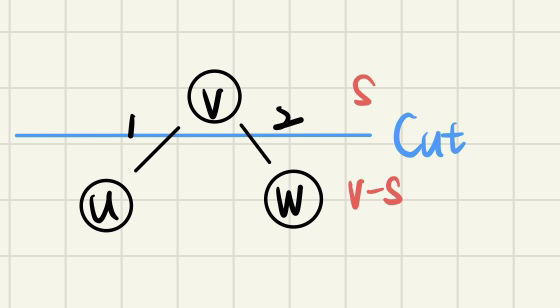 V
S
1
2
Cut
u
W
V-S